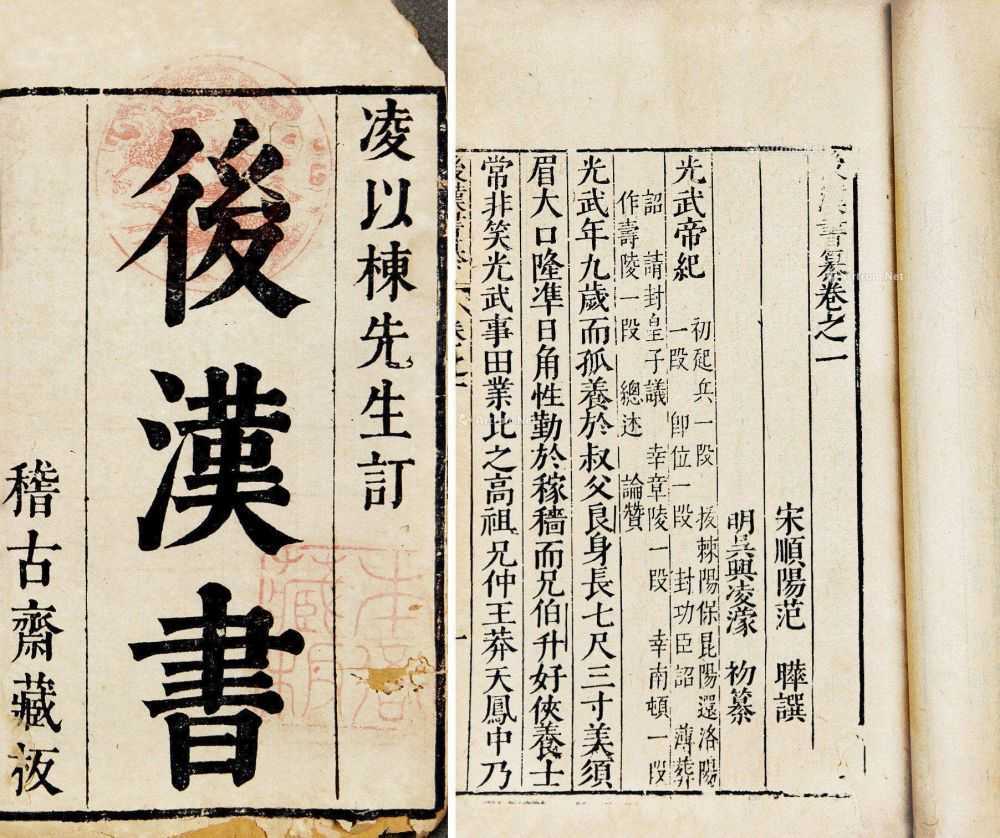 凌以棟先生訂
後漢書
稽古齋藏板
後漢書纂卷之一
宋順陽范 曄譔
明吳興凌濛初纂
光武帝紀
初起兵一段 援棘陽保昆陽還洛陽
一段 卽位一段 封功臣詔 薄葬
詔 請封皇子議 幸章陵一段 幸南頓一段
作壽陵一段 總述 論贊
光武年九歲而孤養於叔父良身長七尺三寸美須
眉大口隆準日角性勤於稼穡而兄伯升好俠養士
常非笑光武事田業比之高祖兄仲王莽天鳳中乃